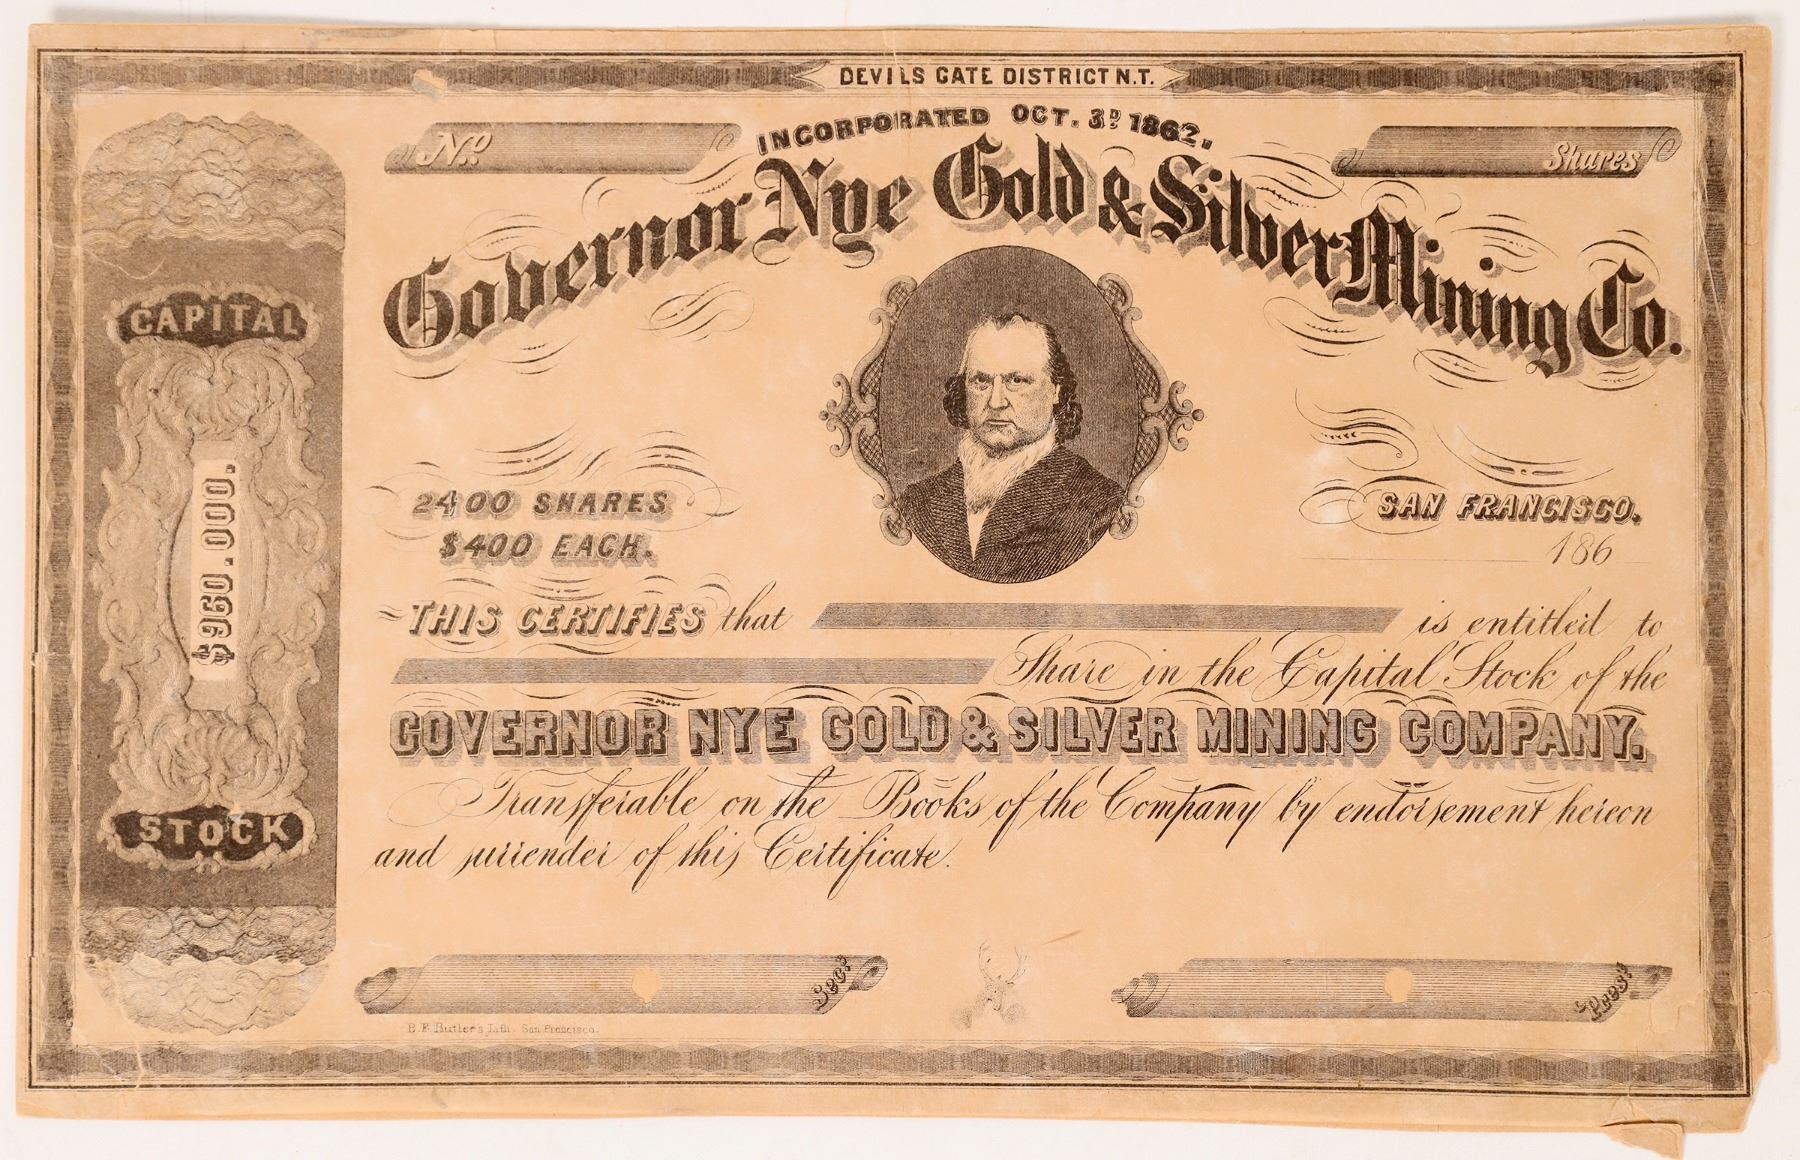 DEVILS GATE DISTRICT N.T.
INCORPORATED OCT. 3D 1862.
No.
Shares
Governor Nye Gold & Silver Mining Co.
CAPITAL
$960.000.
STOCK
2400 SHARES
$400 EACH.
SAN FRANCISCO.
186
THIS CERTIFIES that is entitled to
Share in the Capital Stock of the
GOVERNOR NYE GOLD & SILVER MINING COMPANY.
Transferable on the Books of the Company by endorsement hereon
and surrender of this Certificate.
Secy.
Prest.
B. F. Butler's Lith. San Francisco.